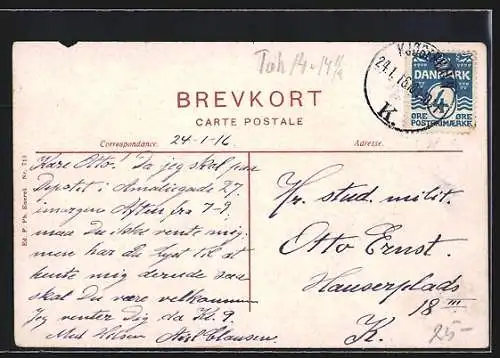 Tak 14-14
BREVKORT
CARTE POSTALE
Correspondance.
Adresse.
24.1.16
K.
DANMARK
4
ØRE ØRE
POSTFRIMÆRKE
24-1-16
Kære Otto! Da jeg skal paa
Depotit i Amaliegade 27.
imorgen Aften fra 7-9,
maa Du ikke vente mig,
men har du Lyst til at
hente mig derude saa
skal Du være velkommen
Jeg venter Dig da Kl. 9.
Med Hilsen Axel Clausen.
Hr. stud. milit.
Otto Ernst.
Hauserplads
18 III
K.
25-
Ed. P. Ph. Eneret. Nr. 713